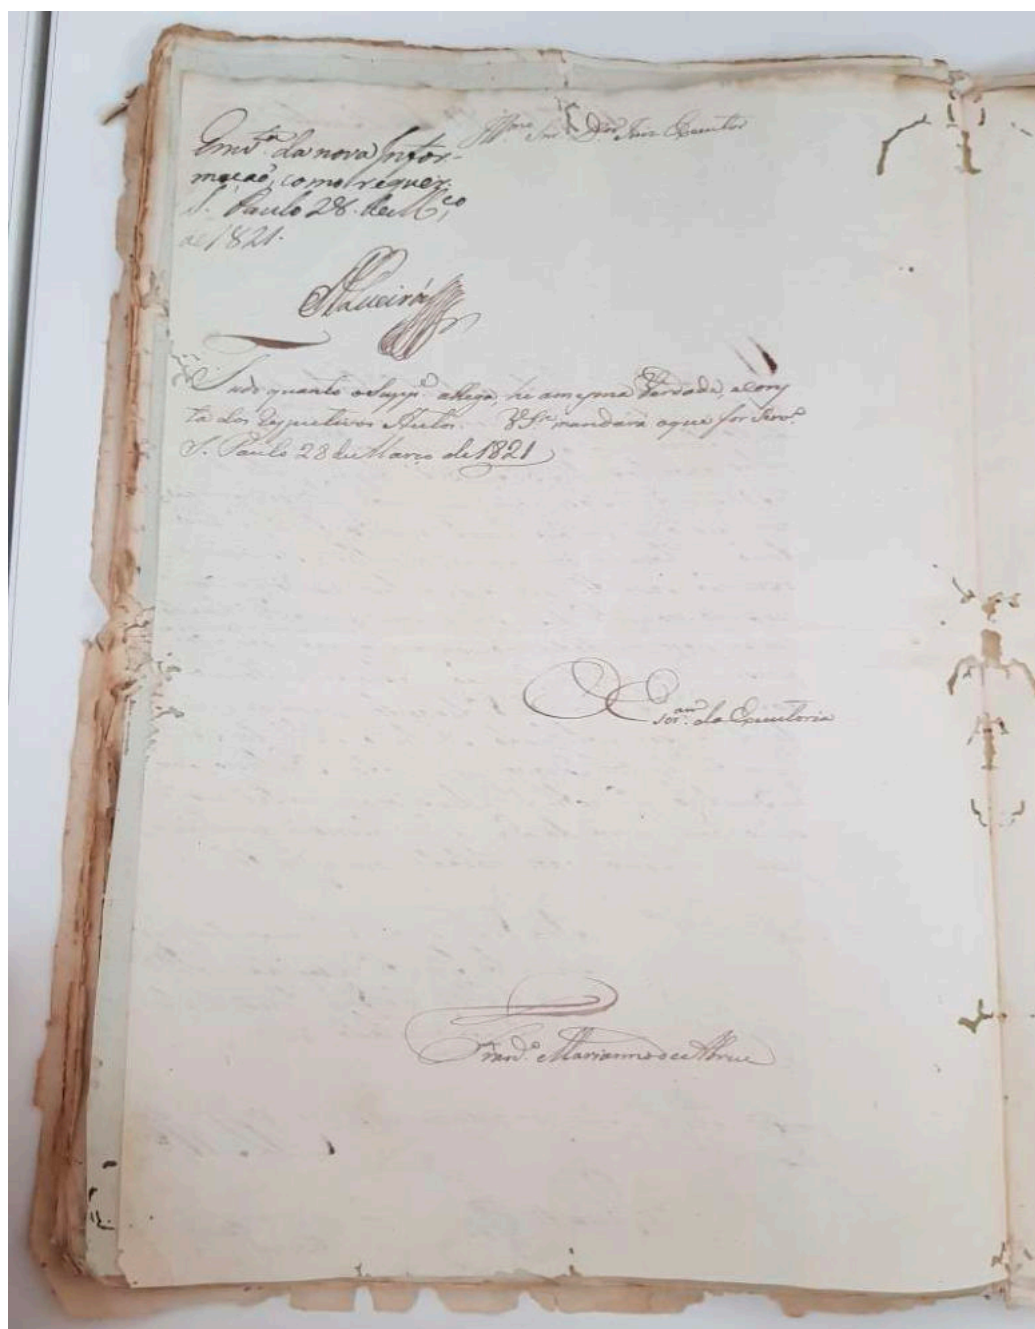 Illmo. Snr. Dor. Juiz Executor
Em vta. da nova Infor-
mação, como requer.
S. Paulo 28. de Mço.
de 1821.
Queiróz
Tudo quanto o Suppe. allega, he a mesma Verdade, e cons
ta dos respectivos Autos. VSa. mandará o que for Servo.
S. Paulo 28 de Março de 1821
O Escram. da Executoria
Franco. Marianno de Abreu